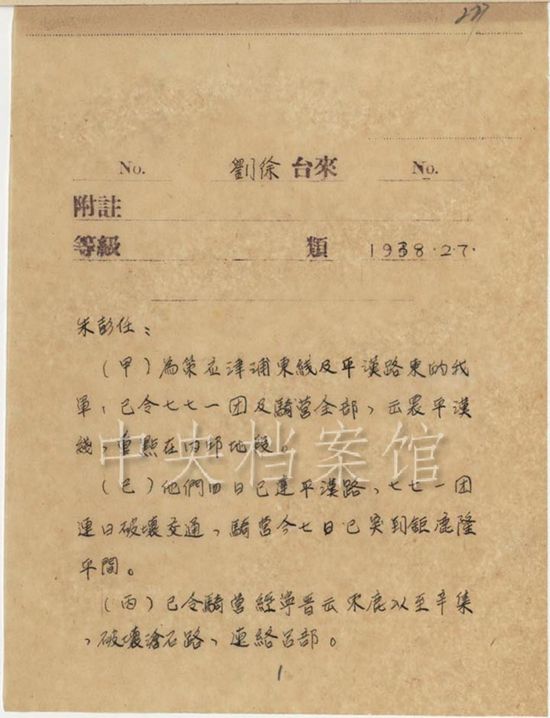 No. 劉徐台來 No.
附註
等級 類 1938.2.7.
朱彭任：
（甲）為策应津浦東綫及平漢路東的我
軍，已令七七一团及騎营全部，去襲平漢
綫，重點在內邱地段。
（乙）他們四日已達平漢路，七七一团
連日破壞交通，騎营今七日已突到鉅鹿隆
平間。
（丙）已令騎营經寧晋去束鹿以至辛集
，破壞滄石路，連絡呂部。
1
中央档案馆